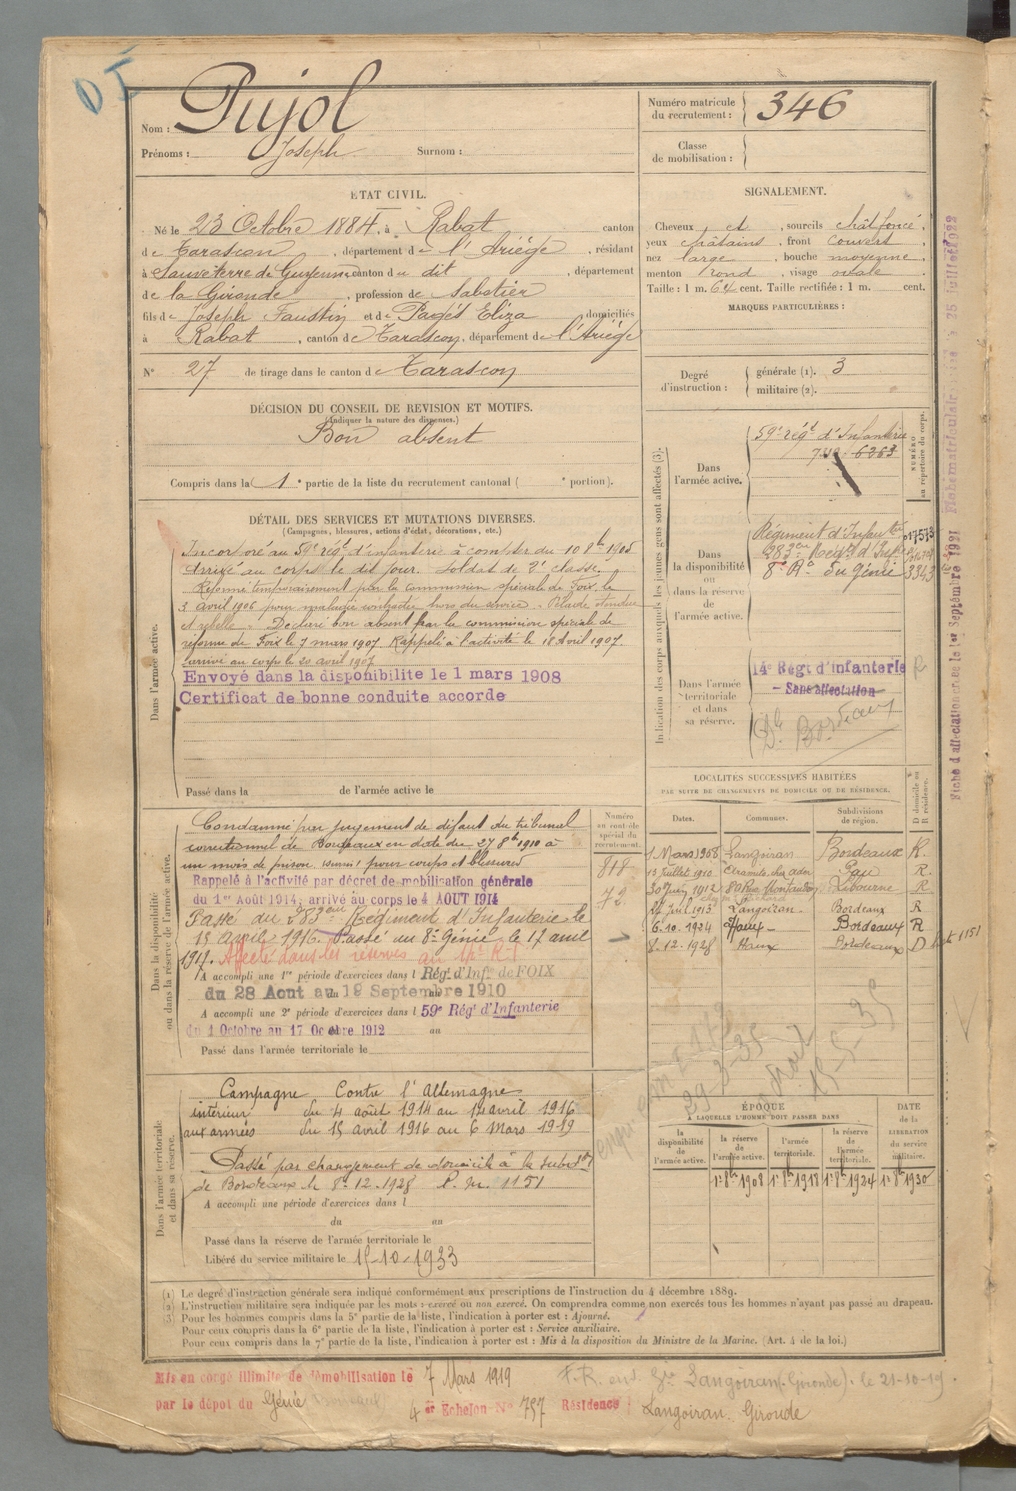 D I
Nom : Pujol
Prénoms : Joseph Surnom :
Numéro matricule
du recrutement : 346
Classe
de mobilisation :
ETAT CIVIL.
Né le 23 Octobre 1884, à Rabat canton
de Tarascon, département de l'Ariège, résidant
à Sauveterre de Guyenne canton du dit, département
de la Gironde, profession de Sabotier
fils de Joseph Faustin et de Pagés Eliza domiciliés
à Rabat, canton de Tarascon, département de l'Ariége
N° 27 de tirage dans le canton de Tarascon
SIGNALEMENT.
Cheveux et, sourcils chât foncé,
yeux châtains, front couvert,
nez large, bouche moyenne,
menton rond, visage ovale
Taille : 1 m. 64 cent. Taille rectifiée : 1 m. cent.
MARQUES PARTICULIÈRES :
Degré
d'instruction : générale (1). 3
militaire (2).
DÉCISION DU CONSEIL DE REVISION ET MOTIFS.
(Indiquer la nature des dispenses.)
Bon absent
Compris dans la 1e partie de la liste du recrutement cantonal ( e portion).
DÉTAIL DES SERVICES ET MUTATIONS DIVERSES.
(Campagnes, blessures, actions d'éclat, décorations, etc.)
Dans l'armée active.
Incorporé au 59e régt d'infanterie à compter du 10 8bre 1905
Arrivé au corps le dit jour. Soldat de 2e classe.
Réformé temporairement par la commission spéciale de Foix le
3 avril 1906 pour maladie contractée hors du service -
Déclaré bon absent par la commission spéciale de
réforme de Foix le 7 mars 1907. Rappelé à l'activité le 18 Avril 1907.
arrivé au corps le 20 avril 1907
Envoyé dans la disponibilite le 1 mars 1908
Certificat de bonne conduite accorde
Passé dans la de l'armée active le
Indication des corps auxquels les jeunes gens sont affectés (3).
NUMÉRO
au répertoire du corps.
Dans
l'armée active.
59e régt d'Infanterie
6263
Dans
la disponibilité
ou
dans la réserve
de
l'armée active.
Régiment d'Infanterie 017573
283ème Regt d'Inf
8e Rt du Génie 3343
Dans l'armée
territoriale
et dans
sa réserve.
14e Régt d'infanterie R
- Sans affectation -
Dt Bordeaux
Fiche d'affectation créée le 1er Septembre 1921 Fiche matriculaire
Dans la disponibilité
ou dans la réserve de l'armée active.
Condamné par jugement de défaut du tribunal
correctionnel de Bordeaux en date du 27 8bre 1910 à
un mois de prison pour coups et blessures
Rappelé à l'activité par décret de mobilisation générale
du 1er Août 1914, arrivé au corps le 4 AOUT 1914
Passé au 283ème Régiment d'Infanterie le
15 avril 1916. Passé au 8e Génie le 17 avril
1917. Affecté dans les réserves au
A accompli une 1re période d'exercices dans l Régt d'Infie de FOIX
du 28 Aout au 19 Septembre 1910
A accompli une 2e période d'exercices dans l 59e Régt d'Infanterie
du 1 Octobre au 17 Octobre 1912 au
Passé dans l'armée territoriale le
Numéro
au contrôle
spécial du
recrutement.
818
72
LOCALITÉS SUCCESSIVES HABITÉES
PAR SUITE DE CHANGEMENTS DE DOMICILE OU DE RÉSIDENCE.
Dates. Communes. Subdivisions
de région. D domicile ou
R résidence.
1 Mars 1908 Langoiran Bordeaux R.
13 Juillet 1910 Pau R.
30 Juin 1912 Libourne R
24 Juil 1913 Langoiran - Bordeaux R
6.10.1924 Haux - Bordeaux R
8.12.1928 Haux Bordeaux D 1151
Dans l'armée territoriale
et dans sa réserve.
Campagne Contre l'Allemagne
intérieur du 4 août 1914 au 14 avril 1916
aux armées du 15 avril 1916 au 6 Mars 1919
Passé par changement de domicile à la subdon
de Bordeaux le 8.12.1928 P. M. 1151
A accompli une période d'exercices dans l
du au
Passé dans la réserve de l'armée territoriale le
Libéré du service militaire le 15-10-1933
ÉPOQUE
A LAQUELLE L'HOMME DOIT PASSER DANS
la
disponibilité
de
l'armée active.
la réserve
de
l'armée active.
l'armée
territoriale.
la réserve
de
l'armée
territoriale.
DATE
de la
LIBÉRATION
du service
militaire.
1er 8bre 1908 1er 8bre 1918 1er 8bre 1924 1er 8bre 1930
(1) Le degré d'instruction générale sera indiqué conformément aux prescriptions de l'instruction du 4 décembre 1889.
(2) L'instruction militaire sera indiquée par les mots : exercé ou non exercé. On comprendra comme non exercés tous les hommes n'ayant pas passé au drapeau.
(3) Pour les hommes compris dans la 5e partie de la liste, l'indication à porter est : Ajourné.
Pour ceux compris dans la 6e partie de la liste, l'indication à porter est : Service auxiliaire.
Pour ceux compris dans la 7e partie de la liste, l'indication à porter est : Mis à la disposition du Ministre de la Marine. (Art. 4 de la loi.)
Mis en congé illimité de démobilisation le 7 Mars 1919
par le dépot du Génie 4 ème Echelon N° 797 Résidence : Langoiran Gironde
F.R. Langoiran (Gironde). le 21-10-19.